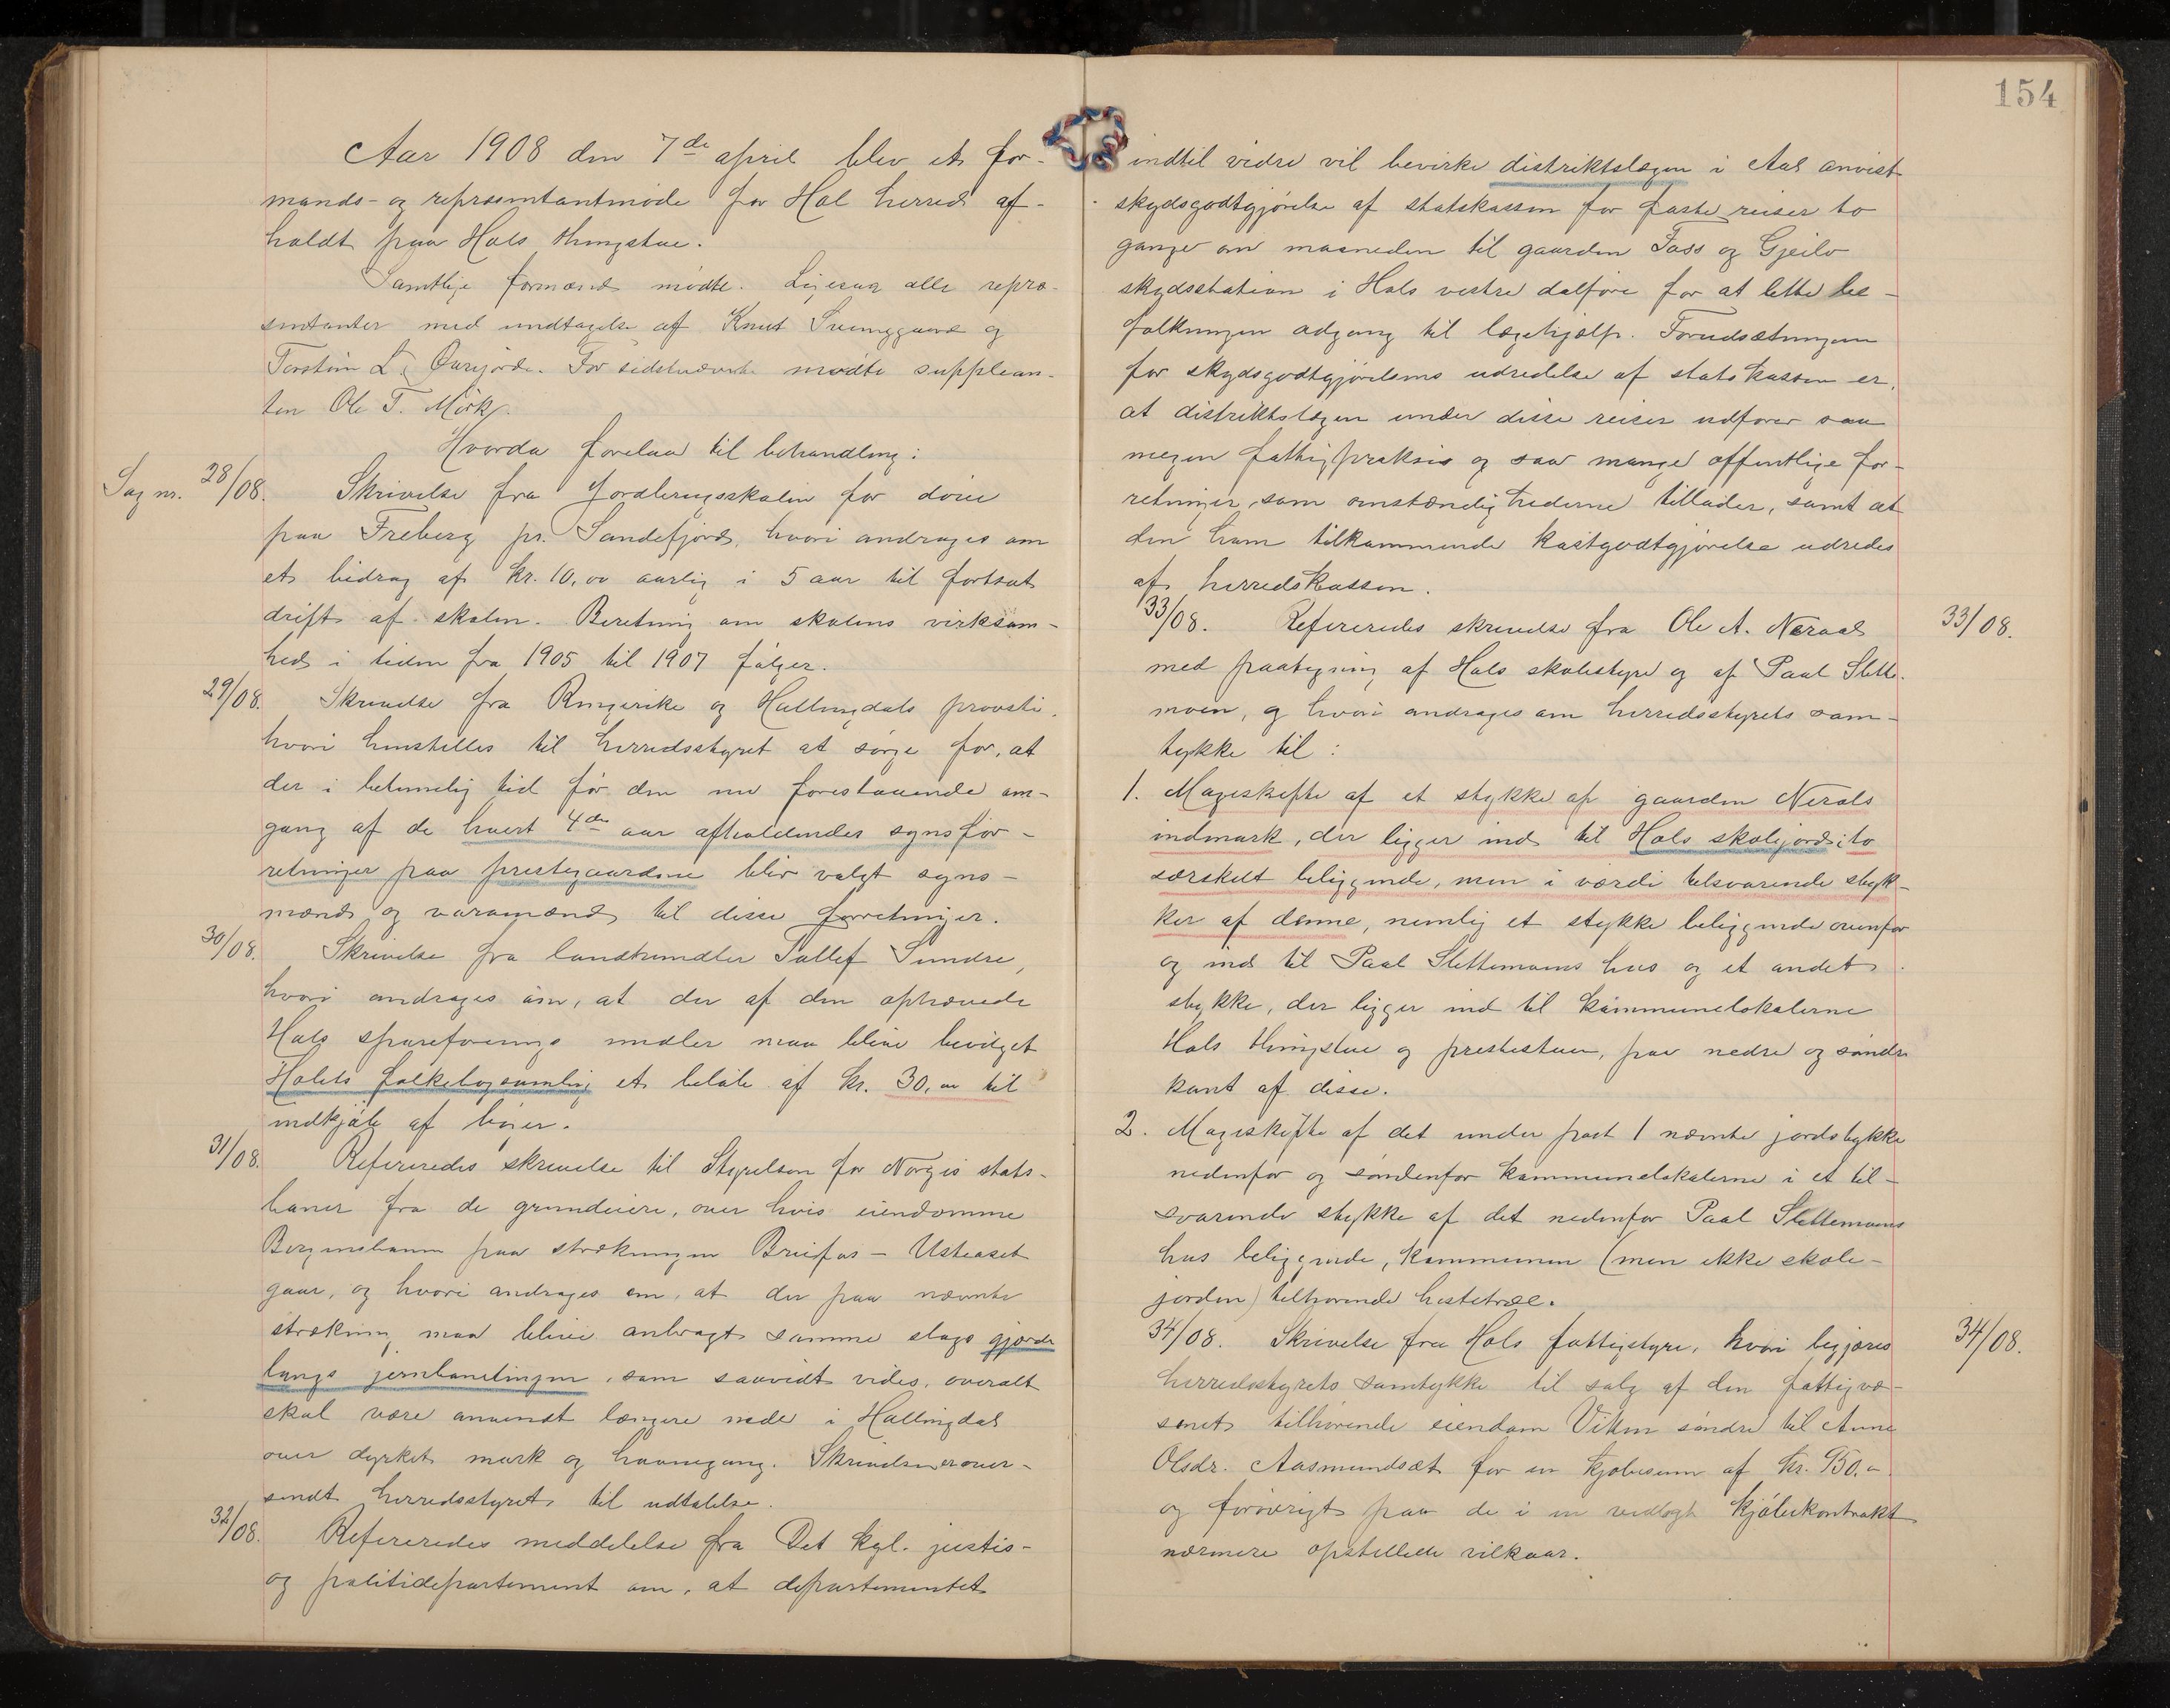 154
Aar 1908 den 7de april blev et for-
mands- og repræsentantmøde for Hol herred af-
holdt paa Hols thingstue.
Samtlige formænd mødte. Ligesaa alle repræ-
sentanter med undtagelse af Knut Sveinggaard og
Torstein L. Øvrejorde. For sidstnævnte mødte supplean-
ten Ole T. Mørk.
Hvorda forelaa til behandling:
Sag nr. 28/08. Skrivelse fra fordlæringsskolen for døve
paa Freberg pr. Sandefjord, hvori andrages om
et bidrag af kr. 10,00 aarlig i 5 aar til fortsat
drift af skolen. Beretning om skolens virksom-
hed i tiden fra 1905 til 1907 følger.
29/08. Skrivelse fra Ringerike og Hallingdals provsti,
hvori henstilles til herredsstyret at sørge for, at
der i betimelig tid før den nu forestaaende om-
gang af de hvert 4de aar afholdendes synsfor-
retninger paa prestegaardene blir valgt syns-
mænd og varamænd til disse forretninger.
30/08. Skrivelse fra landhandler Tollef Sundre,
hvori andrages om, at der af den ophævede
Hols spareforenings midler maa blive bevilget
Holets folkebogsamling et beløb af kr. 30,00 til
indkjøb af bøger.
31/08. Refereredes skrivelse til Styrelsen for Norges stats-
baner fra de grundeiere, over hvis eiendomme
Bergensbanen paa strækningen Breifos - Usteaset
gaar, og hvori andrages om, at der paa nævnte
strækning maa blive anbragt samme slags gjærde
langs jernbanelinjen, som saavidt vides, overalt
skal være anvendt længere nede i Hallingdal
over dyrket mark og havnegang. Skrivelsen er over-
sendt herredsstyret til udtalelse.
32/08. Refereredes meddelelse fra Det kgl. justis-
og politidepartement om, at departementet
indtil videre vil bevirke distriktslægen i Aal anvist
skydsgodtgjørelse af statskassen for faste reiser to
gange om maaneden til gaarden Foss og Gjeilo
skydsstation i Hols vestre dalføre for at lette be-
folkningen adgang til lægehjælp. Forudsætningen
for skydsgodtgjørelsens udredelse af statskassen er,
at distriktslægen under disse reiser udfører saa
megen fattigpraksis og saa mange offentlige for-
retninger, som omstændighederne tillader, samt at
den ham tilkommende kostgodtgjørelse udredes
af herredskassen.
33/08. Refereredes skrivelse fra Ole A. Neraal 33/08.
med paategning af Hols skolestyre og af Paal Slette-
moen, og hvori andrages om herredsstyrets sam-
tykke til:
1. Mageskifte af et stykke af gaarden Nerals
indmark, der ligger ind til Hols skolejord i to
særskilt beliggende, men i værdi tilsvarende styk-
ker af denne, nemlig et stykke beliggende ovenfor
og ind til Paal Slettemoens hus og et andet
stykke, der ligger ind til kommunelokalerne
Hols thingstue og prestestuen, paa nedre og søndre
kant af disse.
2. Mageskifte af det under post 1 nævnte jordstykke
nedenfor og søndenfor kommunelokalerne i et til-
svarende stykke af det nedenfor Paal Slettemoens
hus beliggende, kommunen (men ikke skole-
jorden) tilhørende hestetræe.
34/08. Skrivelse fra Hols fattigstyre, hvori begjæres 34/08.
herredsstyrets samtykke til salg af den fattigvæ-
senet tilhørende eiendom Viken søndre til Anne
Olsdr. Aasmundsæt for en kjøbesum af kr. 950.-
og forøvrigt paa de i en vedlagt kjøbekontrakt
nærmere opstillede vilkaar.